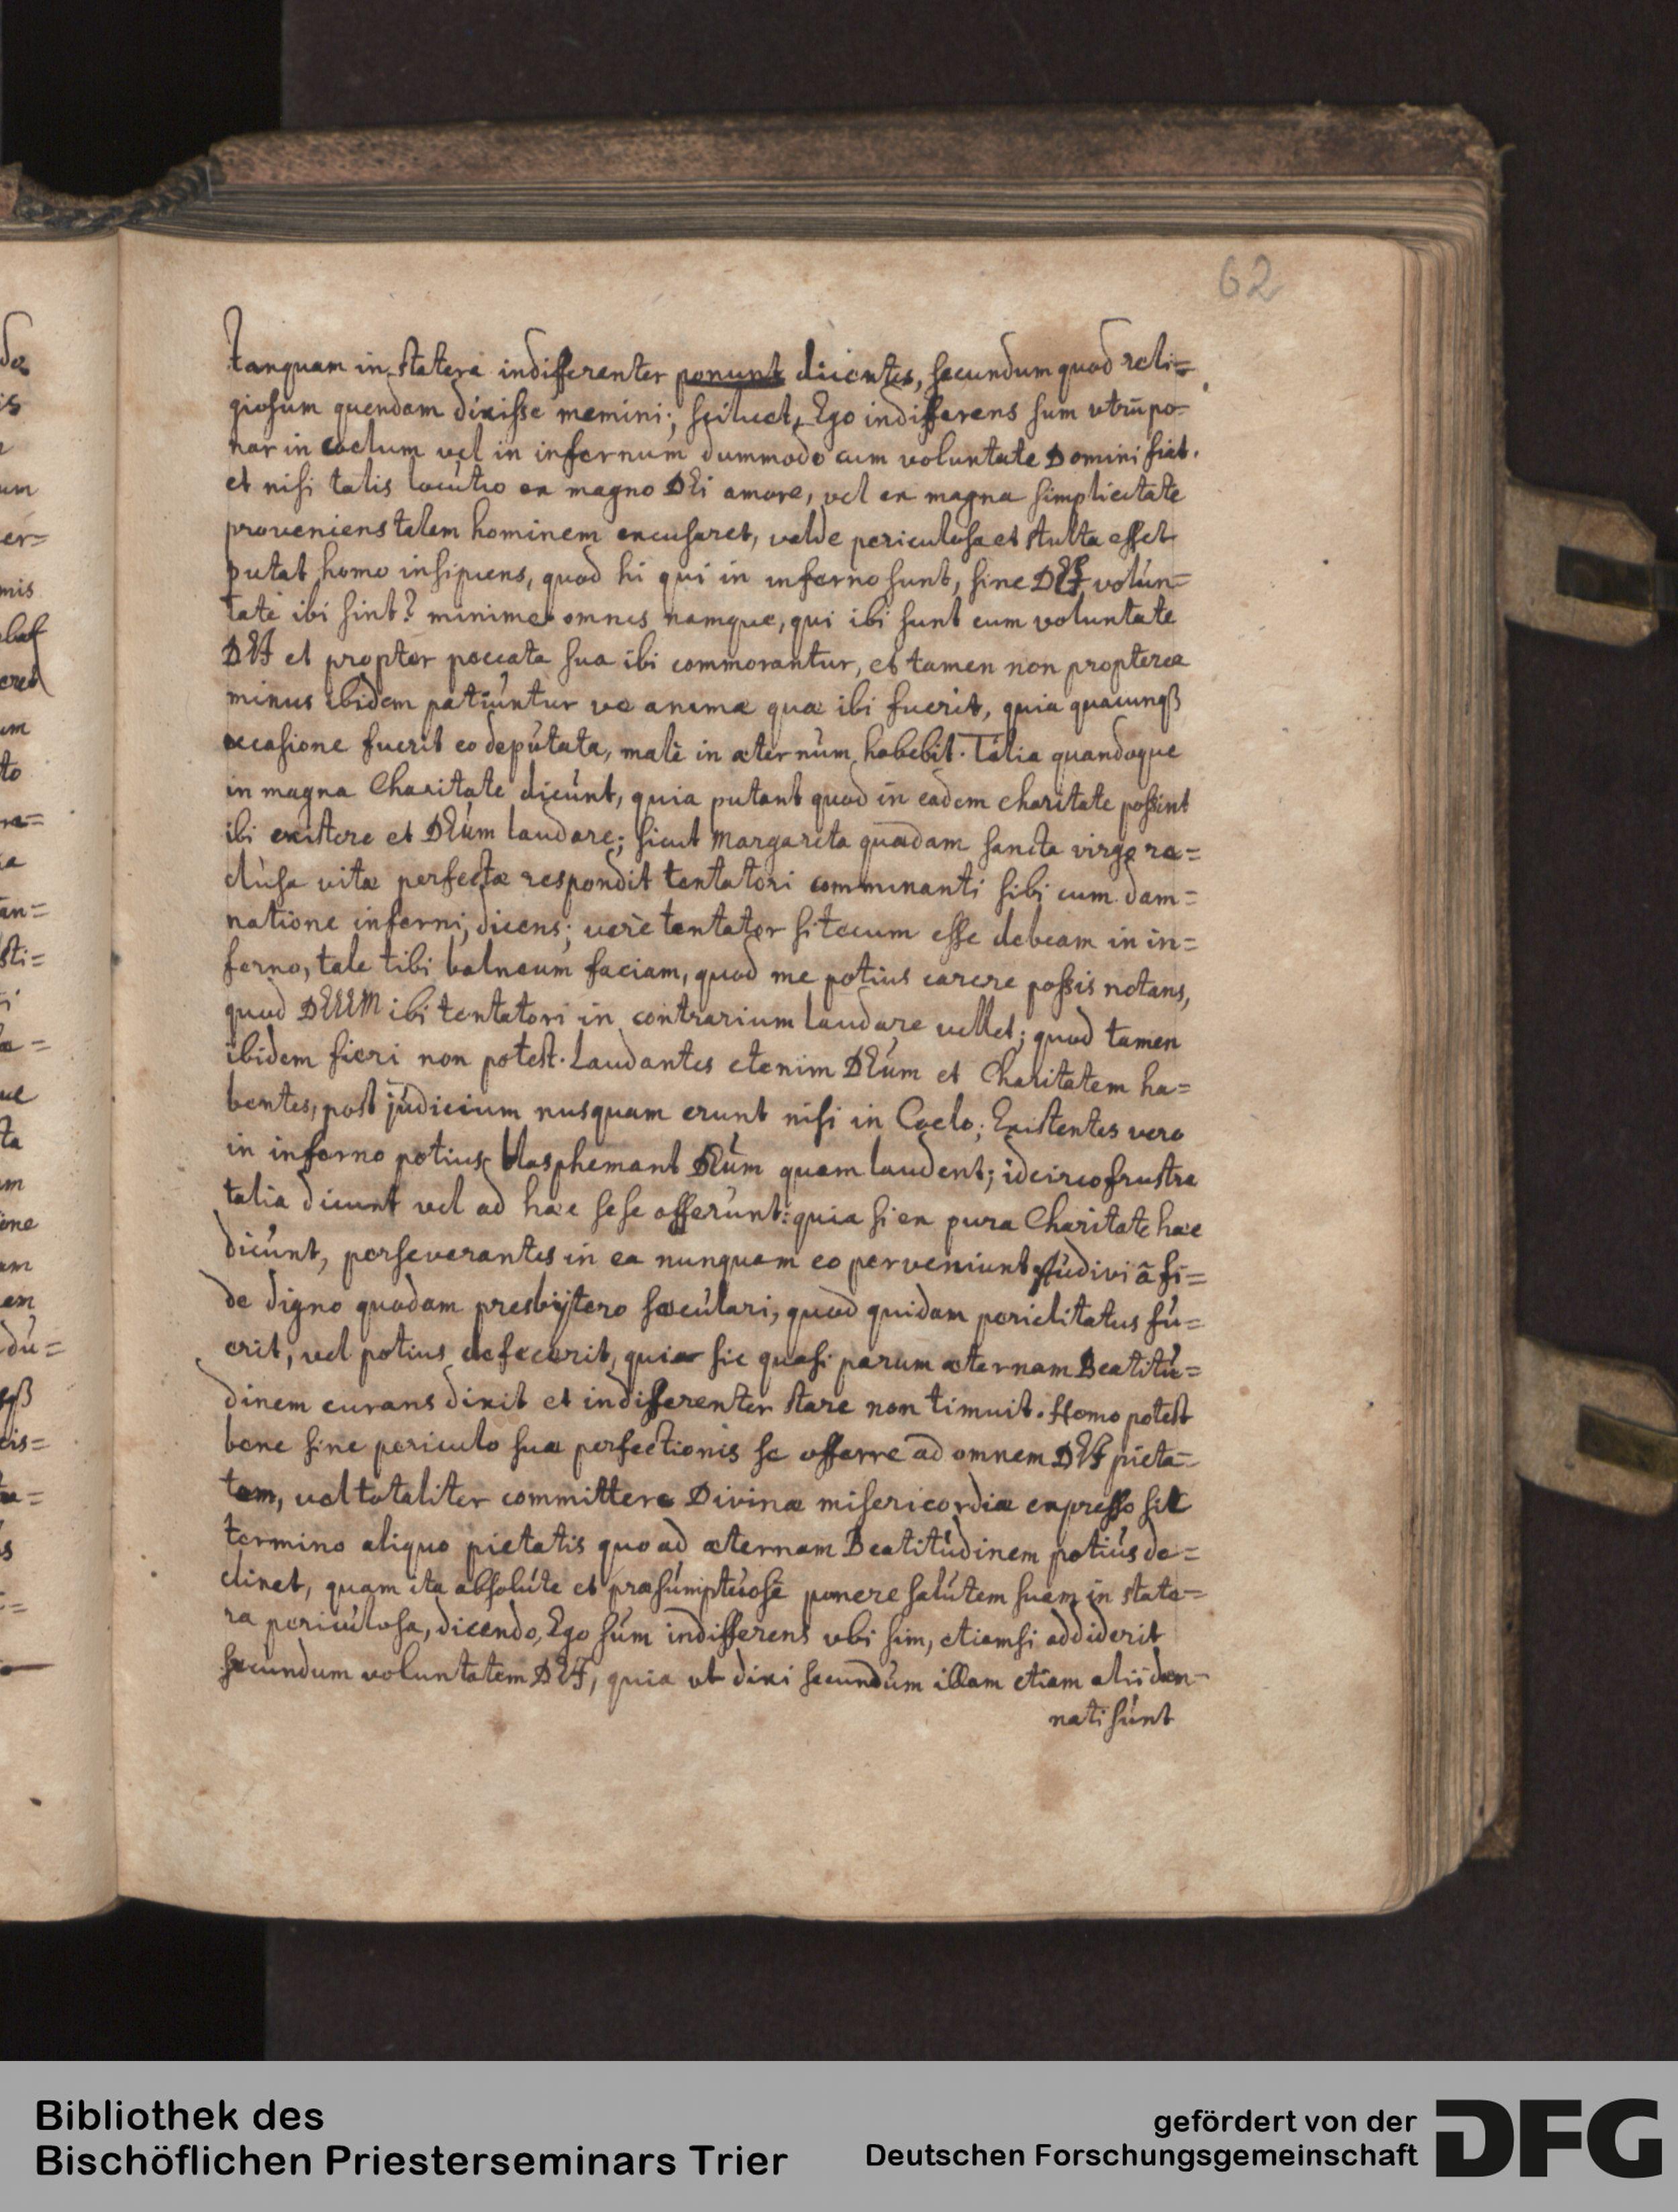 62
tanquam in statera indifferenter ponunt dicentes, secundum quod reli=
giosum quendam dixisse memini; scilicet, Ego indifferens sum utrũ po=
nar in coelum vel in infernum dummodo cum voluntate Domini fiat.
et nisi talis locutio ex magno DEi amore, vel ex magna simplicitate
proveniens talem hominem excusaret, valde periculosa et stulta esset
putat homo insipiens, quod hi qui in inferno sunt, sine DEI volun=
tate ibi sint? minime omnes namque, qui ibi sunt cum voluntate
DEI et propter peccata sua ibi commorantur, et tamen non propterea
minus ibidem patiuntur væ animæ quæ ibi fuerit, quia quacunqꝫ
occasione fuerit eo deputata, malè in æternum habebit. Talia quandoque
in magna Charitate dicunt, quia putant quod in eadem charitate possint
ibi existere et DEum laudare; sicut Margareta quædam sancta virgo re=
clusa vitæ perfectæ respondit tentatori comminanti sibi cum dam=
natione inferni, dicens; verè tentator si tecum esse debeam in in=
ferno, tale tibi balneum faciam, quod me potius carere possis notans,
quod DEUM ibi tentatori in contrarium laudare vellet; quod tamen
ibidem fieri non potest. Laudantes etenim DEum et Charitatem ha=
bentes, post judicium nusquam erunt nisi in Coelo; Existentes vero
in inferno potius blasphemant DEum quam laudent; idcirco frustra
talia dicunt vel ad hæc sese offerunt: quia si ex pura Charitate hæc
dicunt, perseverantes in ea nunquam eo perveniunt. Audivi â fi=
de digno quodam presbijtero sæculari, quod quidam periclitatus fu=
erit, vel potius defecerit, quia sic quasi parum æternam Beatitu=
dinem curans dixit et indifferenter stare non timuit. Homo potest
bene sine periculo suæ perfectionis se offerre ad omnem DEI pieta=
tem, vel totaliter committere Divinæ misericordiæ expresso sic
termino aliquo pietatis quo ad æternam Beatitudinem potius de=
clinet, quam ita absolute et præsumptuosè ponere salutem suam in state=
ra periculosa, dicendo, Ego sum indifferens ubi sim, etiamsi addiderit
secundum voluntatem DEI, quia ut dixi secundum illam etiam alii dam=
nati sunt
Bibliothek des
Bischöflichen Priesterseminars Trier
gefördert von der
Deutschen Forschungsgemeinschaft
DFG